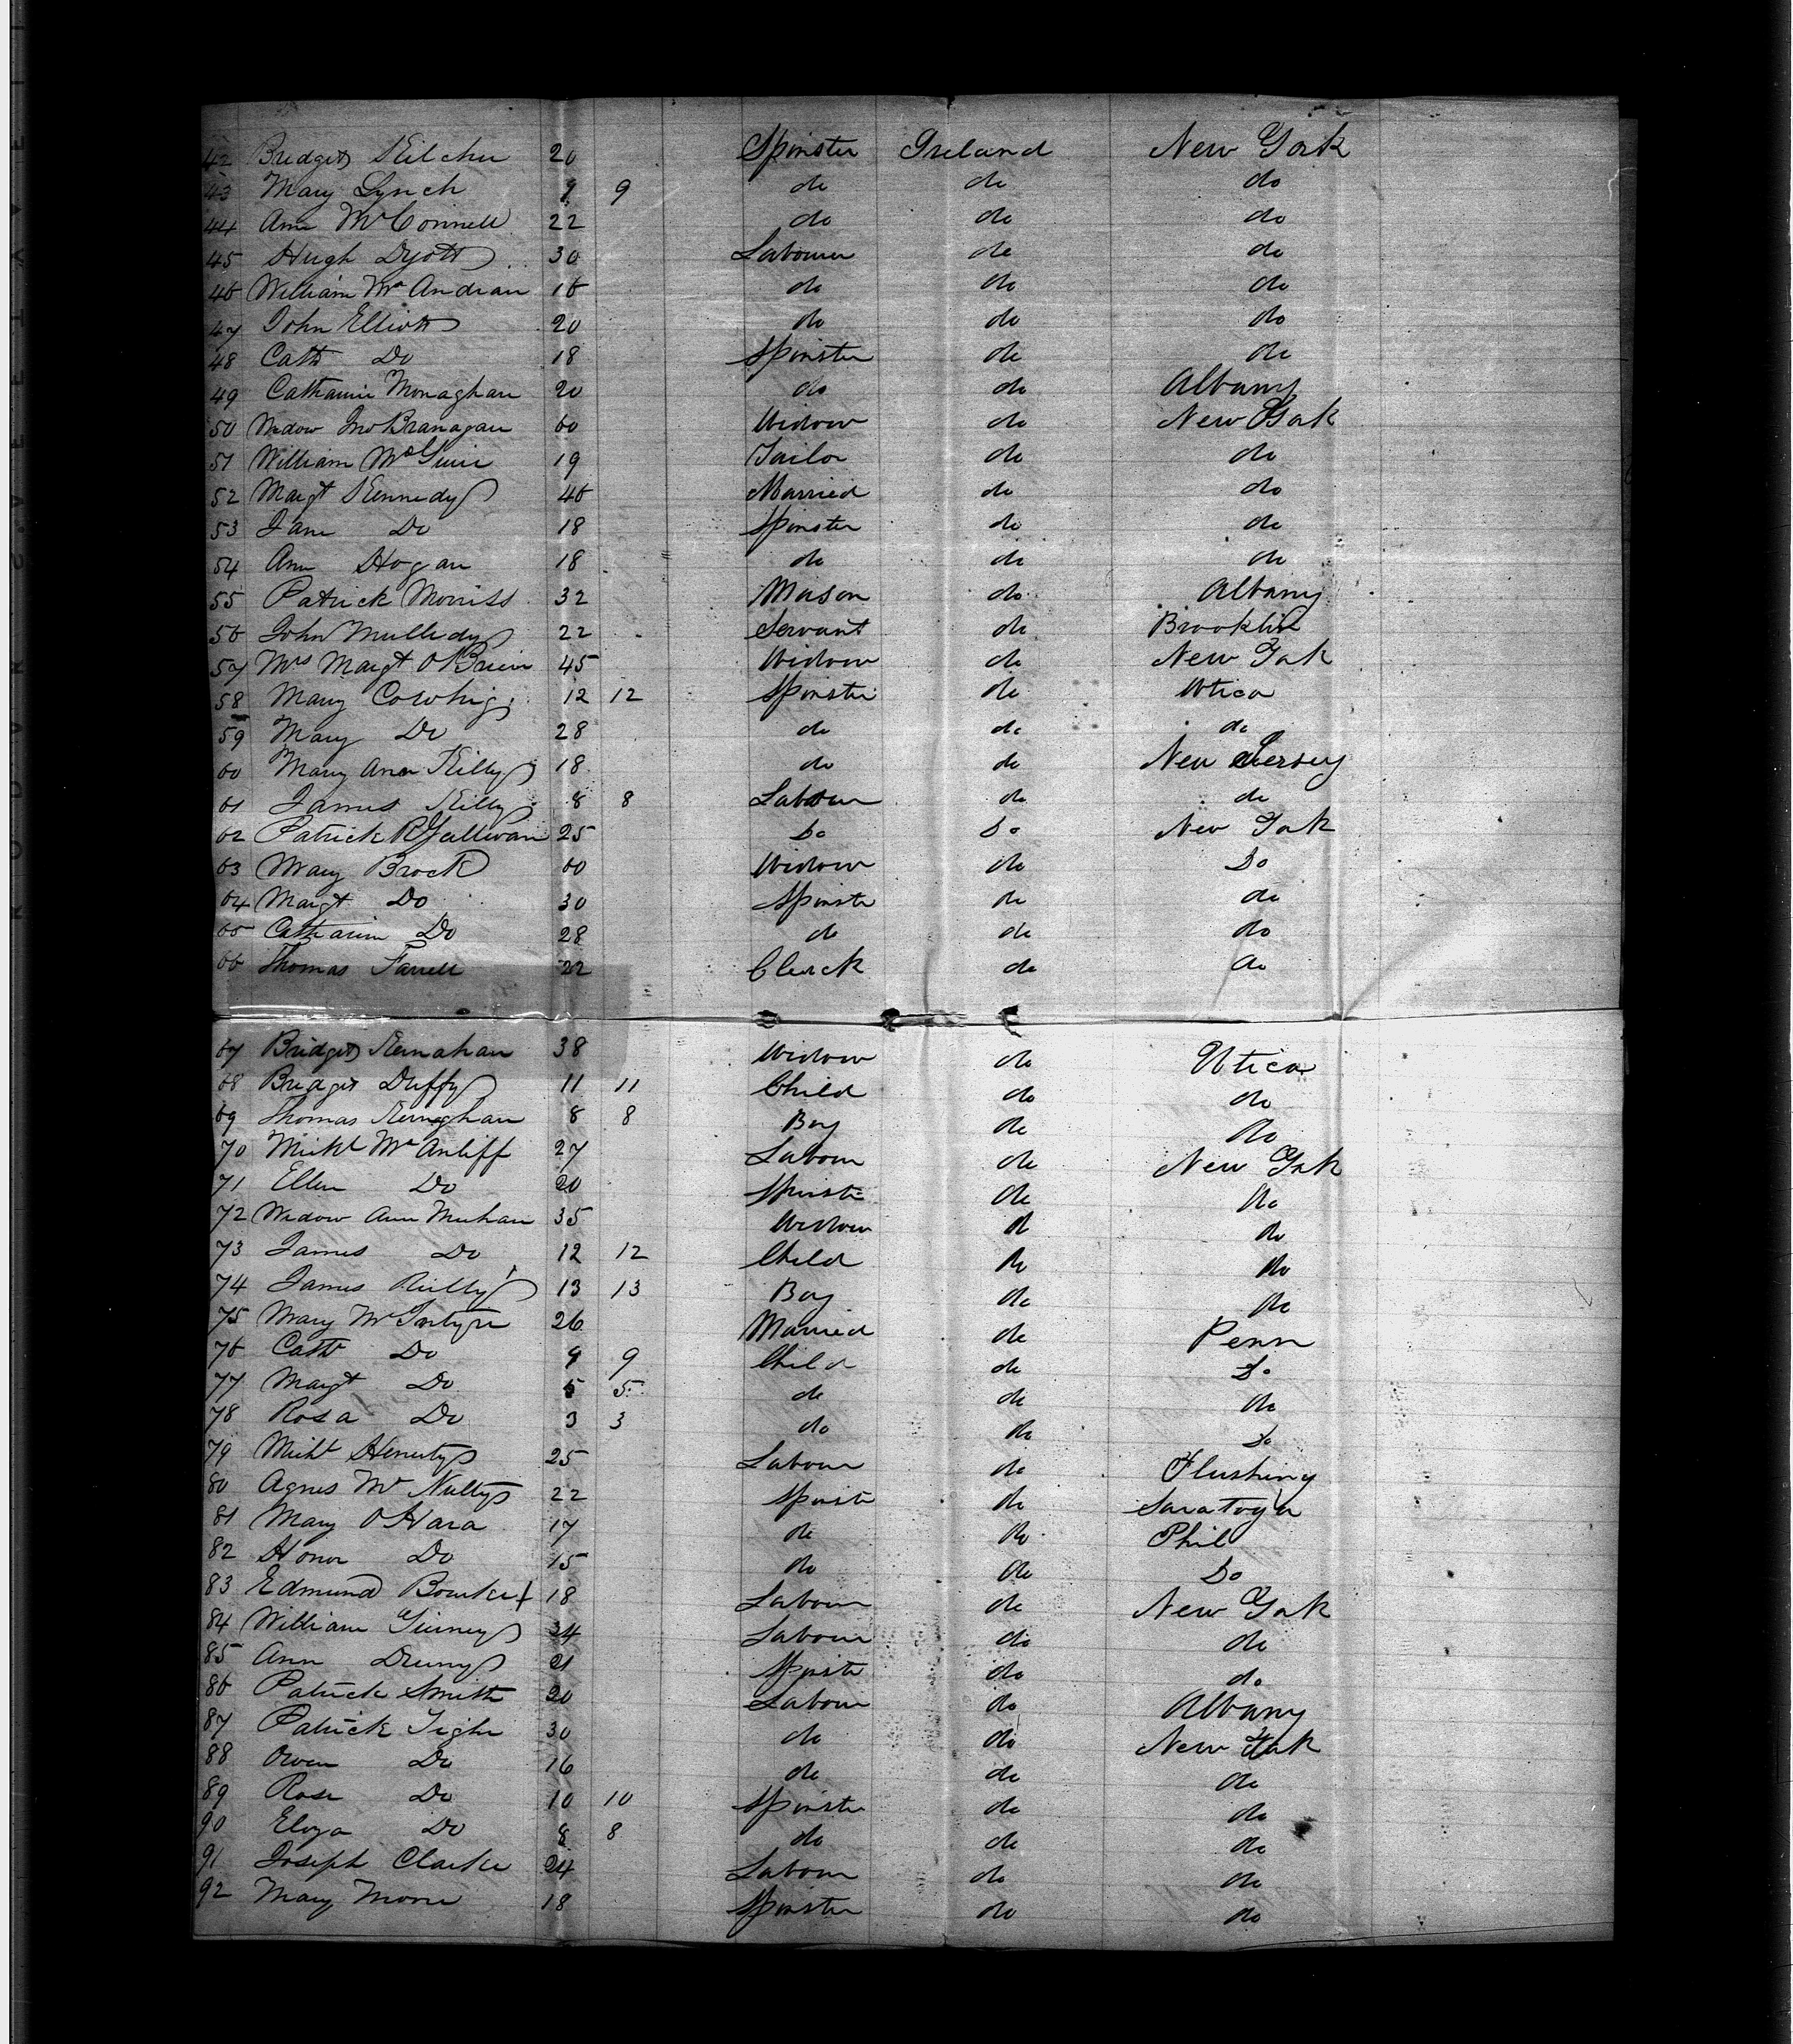 42 Bridget Kilcher 20 Spinster Ireland New York
43 Mary Lynch 9 9 do do do
44 Ann McConnell 22 do do do
45 Hugh Dyott 30 Labourer do do
46 William McAndrau 16 do do do
47 John Elliott 20 do do do
48 Cath Do 18 Spinster do do
49 Catharine Monaghan 20 do do Albany
50 Widow Jno Branagan 60 Widow do New York
51 William McGuire 19 Tailor do do
52 Margt Kennedy 46 Married do do
53 Jane Do 18 Spinster do do
54 Ann Hogan 18 do do do
55 Patrick Morriss 32 Mason do Albany
56 John Mulledy 22 Servant do Brooklin
57 Mrs Margt O'Brien 45 Widow do New York
58 Mary Cowhig 12 12 Spinster do Utica
59 Mary Do 28 do do do
60 Mary Ann Killy 18 do do New Jersey
61 James Killy 8 8 Labour do do
62 Patrick Sullivan 25 Do Do New York
63 Mary Brock 60 Widow do Do
64 Margt Do 30 Spinster do do
65 Catharine Do 28 do do do
66 Thomas Farrell 22 Clerck do do
67 Bridget Kernahan 38 Widow do Utica
68 Bridget Duffy 11 11 Child do do
69 Thomas 8 8 Boy do do
70 Michl McAuliff 27 Labour do New York
71 Ellen Do 20 Spinster do do
72 Widow Ann Meehan 35 Widow do do
73 James Do 12 12 Child do do
74 James Reilly 13 13 Boy do do
75 Mary McIntyre 26 Married do Penn
76 Cath Do 9 9 Child do Do
77 Margt Do 5 5 do do do
78 Rosa Do 3 3 do do Do
79 Michl Henesty 25 Labour do Flushing
80 Agnes McNulty 22 Spinst do Saratoga
81 Mary O'Hara 17 do do Phil
82 Honor Do 15 do do Do
83 Edmund Bourke + 18 Labour do New York
84 William Gurney 34 Labour do do
85 Ann 21 Spinst do do
86 Patrick Smith 20 Labour do Albany
87 Patrick Tighe 30 do do New York
88 Owen Do 16 do do do
89 Rose Do 10 10 Spinster do do
90 Eliza Do 8 8 do do do
91 Joseph Clarke 24 Labour do do
92 Mary Moore 18 Spinster do do